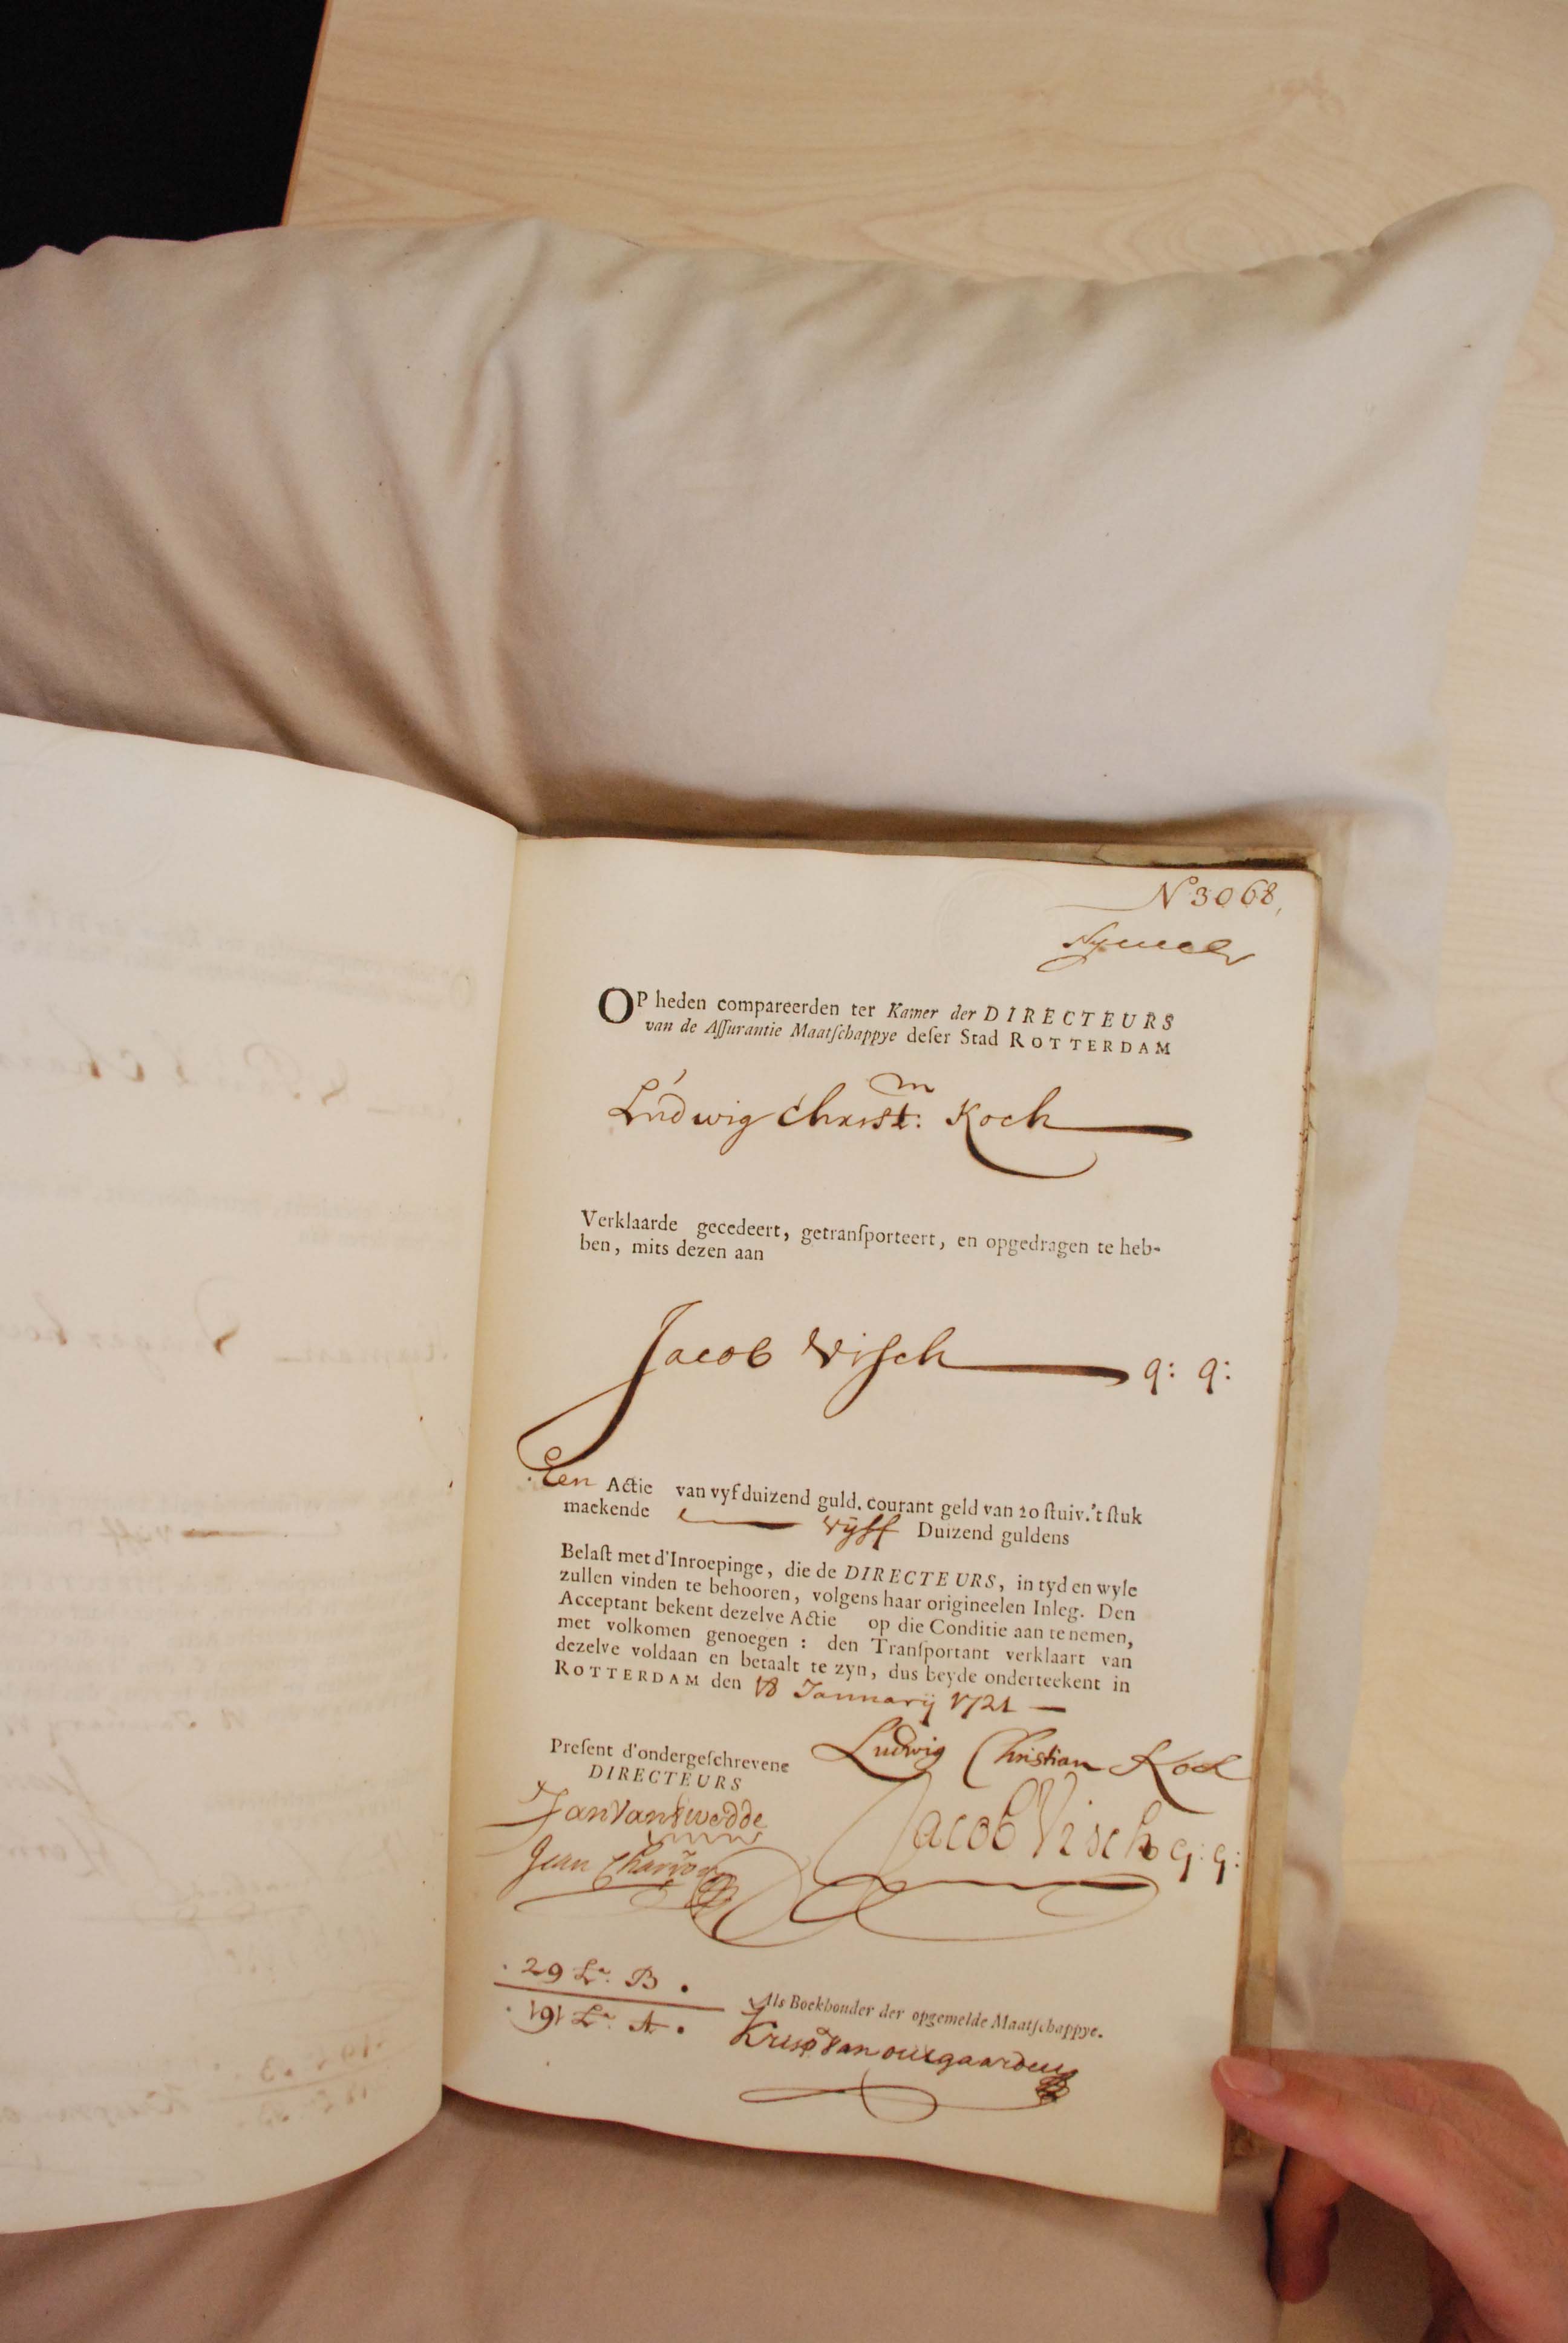 N 3068,
OP heden compareerden ter Kamer der DIRECTEURS
van de Aſſurantie Maatſchappye deſer Stad ROTTERDAM
Ludwig Christ:m Koch
Verklaarde gecedeert, getranſporteert, en opgedragen te heb-
ben, mits dezen aan
Jacob Visch q: q:
Een Actie van vyf duizend guld. courant geld van 20 ſtuiv. 't ſtuk
maekende vijff Duizend guldens
Belaſt met d'Inroepinge, die de DIRECTEURS, in tyd en wyle
zullen vinden te behooren, volgens haar origineelen Inleg. Den
Acceptant bekent dezelve Actie op die Conditie aan te nemen,
met volkomen genoegen : den Tranſportant verklaart van
dezelve voldaan en betaalt te zyn, dus beyde onderteekent in
ROTTERDAM den 18 Januarij 1721
Preſent d'ondergeſchrevene
DIRECTEURS
Ludwig Christian Koch
Jan Van Zwedde
Jacob Visch q: q:
Jean Charron
29 La. B.
191 La. A.
Als Boekhouder der opgemelde Maatſchappye.